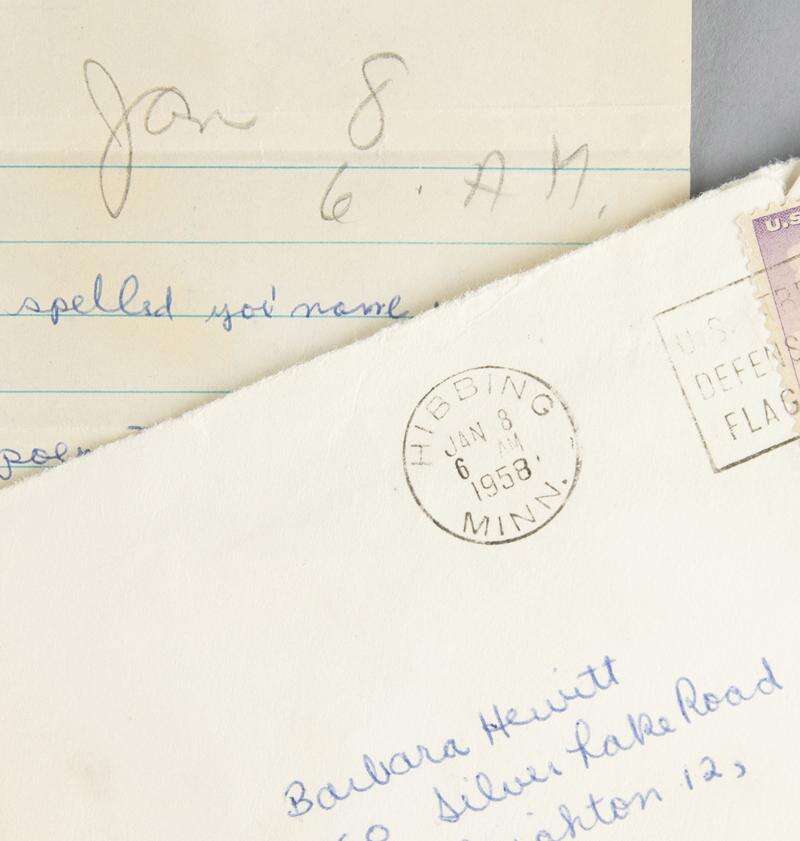 Jan 8
6 A M.
spelled yor' name.
HIBBING
JAN 8
6 AM
1958
MINN.
U.S.
U.S.
DEFENS
FLAG
Barbara Hewitt
Silver Lake Road
12,